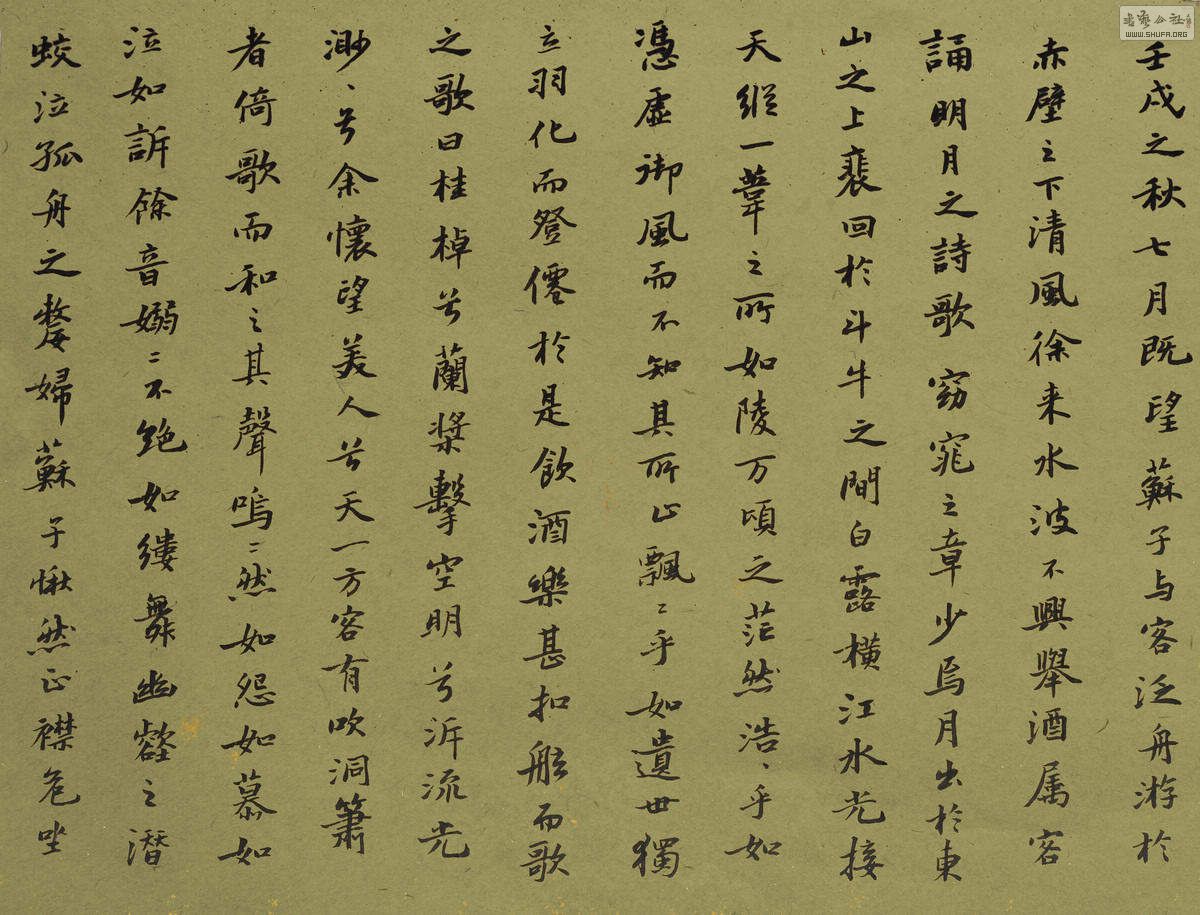 壬戌之秋七月既望蘇子与客泛舟游於
赤壁之下清風徐来水波不興舉酒属客
誦明月之詩歌窈窕之章少焉月出於東
山之上裴回於斗牛之間白露横江水光接
天縱一葦之所如陵万頃之茫然浩、乎如
憑虚御風而不知其所止飄〻乎如遺世獨
立羽化而登僊於是飲酒樂甚扣舷而歌
之歌曰桂棹兮蘭槳擊空明兮泝流光
渺、兮余懷望美人兮天一方客有吹洞簫
者倚歌而和之其聲嗚〻然如怨如慕如
泣如訴餘音嫋〻不絶如縷舞幽壑之潛
蛟泣孤舟之嫠婦蘇子愀然正襟危坐
WWW.SHUFA.ORG